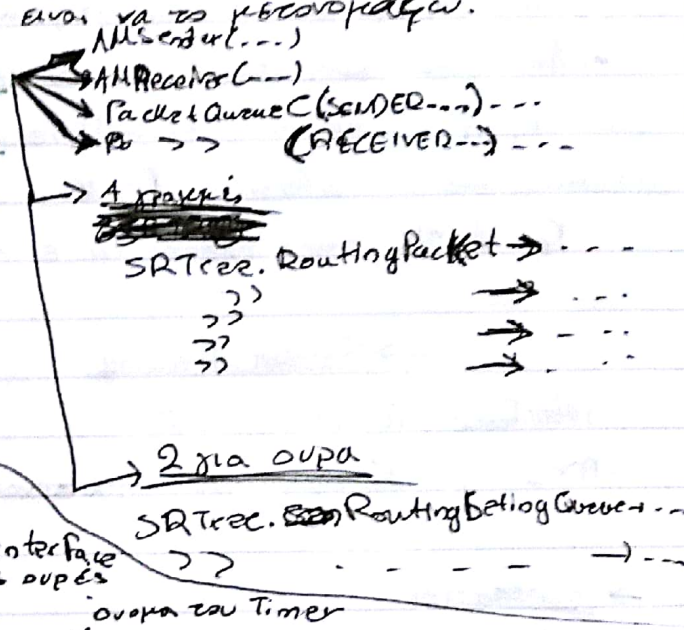 ειναι να το μετονομαζω.
AMSender(...)
AMReceiver(---)
PacketQueueC(SENDER---)---
>> (RECEIVER---)---
4 γραμμές
SRTree.RoutingPacket → ----
>> → ---
>> → ---
>> → ---
>>
2 για ουρα
SRTree.Routing Queue → ---
interface >> ---- → ---
ουρές
ονομα του Timer